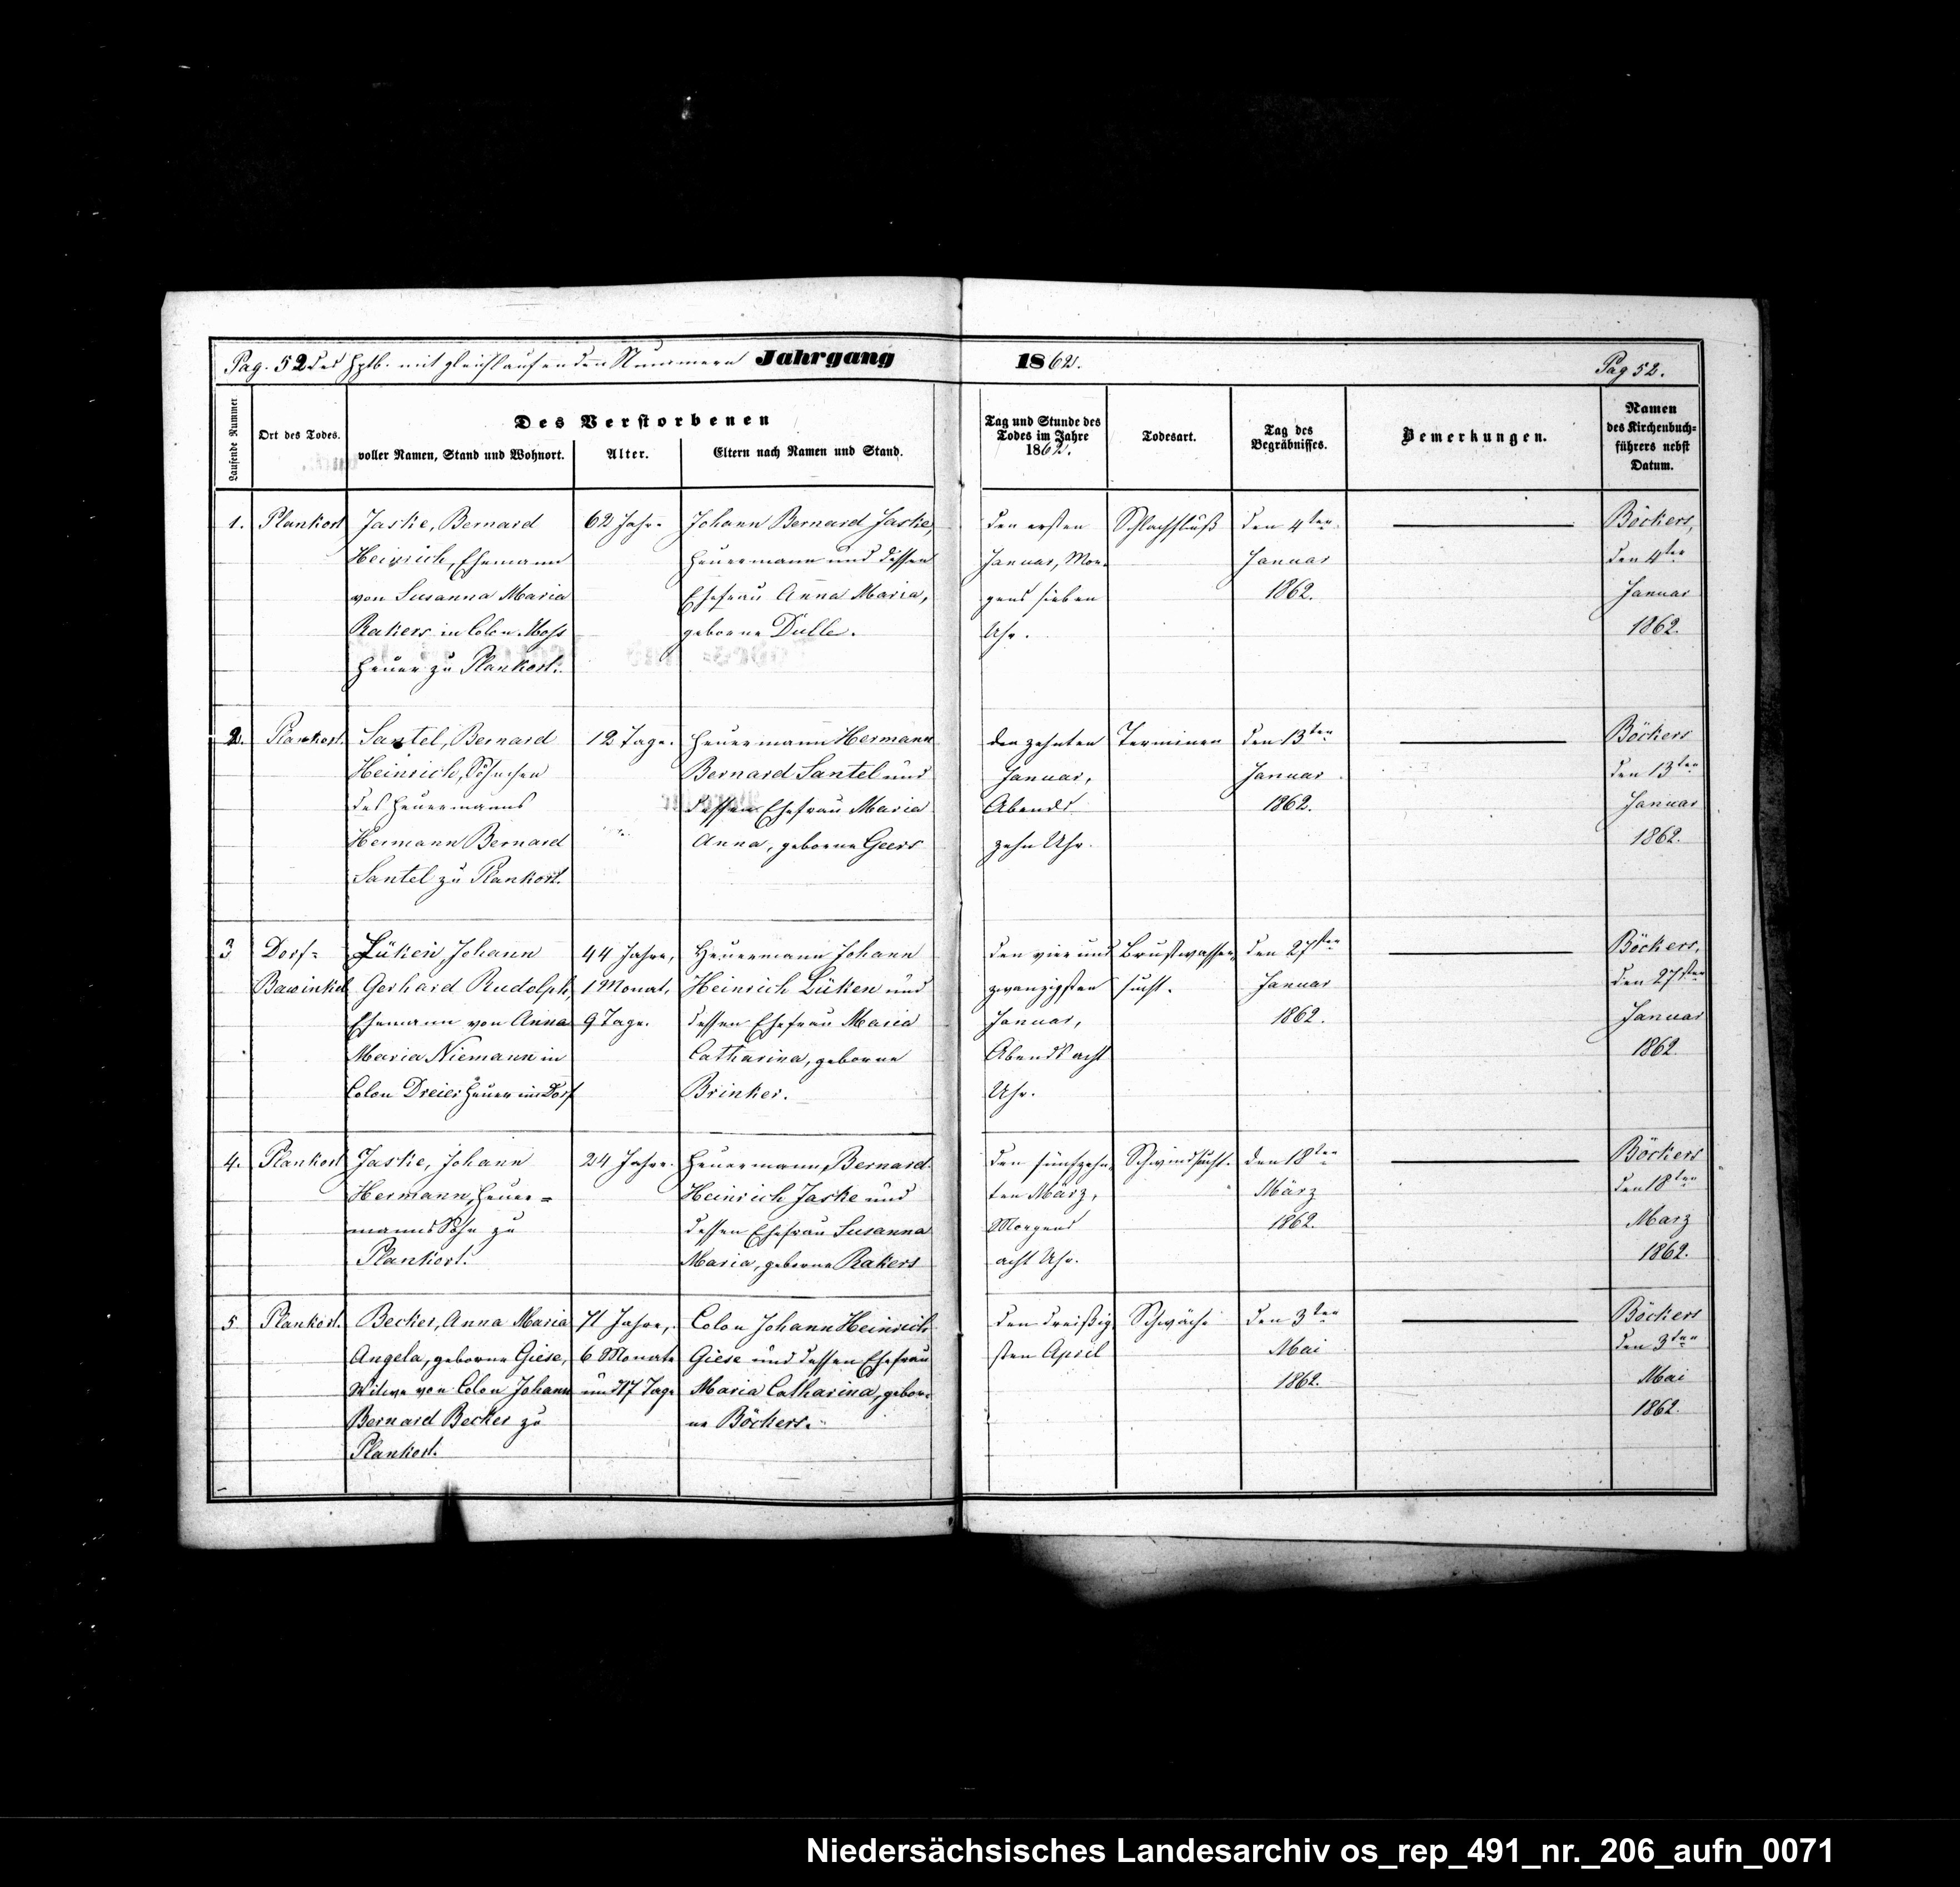 Pag. 52 des Hptb. mit gleichlaufenden Nummern Jahrgang 1862. Pag 52.
Laufende Nummer
Ort des Todes.
Des Verstorbenen
voller Namen, Stand und Wohnort.
Alter.
Eltern nach Namen und Stand.
Tag und Stunde des
Todes im Jahre
1862.
Todesart.
Tag des
Begräbnisses.
Bemerkungen.
Namen
des Kirchenbuch-
führers nebst
Datum.
1.
Plankort
Jaske, Bernard
Heinrich, Ehemann
von Susanna Maria
Rakers in Colon
Heuer zu Plankort.
62 Jahre
Johann Bernard Jaske,
Heuermann und dessen
Ehefrau Anna Maria,
geborne Dulle.
den ersten
Januar, Mor-
gens sieben
Uhr.
Schlachfluß
den 4ten
Januar
1862.
Böckers,
den 4ten
Januar
1862.
2.
Plankort.
Santel, Bernard
Heinrich, Söhnchen
des Heuermanns
Hermann Bernard
Santel zu Plankort.
12 Tage.
Heuermann Hermann
Bernard Santel und
dessen Ehefrau Maria
Anna, geborne Geers
den zehnten
Januar,
Abends
zehn Uhr.
Terminen
den 13ten
Januar
1862.
Böckers
den 13ten
Januar
1862.
3
Dorf-
Bawinkel
Lüken, Johann
Gerhard Rudolph,
Ehemann von Anna
Maria Niemann in
Colon Dreiers Heuer im Dorf
44 Jahre,
1 Monat,
9 Tage.
Heuermann Johann
Heinrich Lüken und
dessen Ehefrau Maria
Catharina, geborne
Brinker.
den vier und
zwanzigsten
Januar,
Abends acht
Uhr.
Brustwasser-
sucht.
den 27sten
Januar
1862.
Böckers,
den 27sten
Januar
1862
4.
Plankort
Jaske, Johann
Hermann, Heuer=
manns Sohn zu
Plankort.
24 Jahre.
Heuermann Bernard
Heinrich Jaske und
dessen Ehefrau Susanna
Maria, geborne Rakers
den fünfzehn-
ten März,
Morgens
acht Uhr.
Schwindsucht.
den 18ten
März
1862.
Böckers
den 18ten
Marz
1862.
5
Plankort.
Becker, Anna Maria
Angela, geborne Giese,
Witwe von Colon Johann
Bernard Becker zu
Plankort.
71 Jahre,
6 Monate
und 17 Tage
Colon Johann Heinrich
Giese und dessen Ehefrau
Maria Catharina, gebor-
ne Böckers.
den dreißig-
sten April
Schwäche
den 3ten
Mai
1862.
Böckers
den 3ten
Mai
1862.
Niedersächsisches Landesarchiv os_rep_491_nr._206_aufn_0071